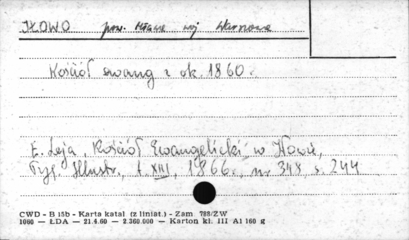 IŁOWO pow. Mława woj Warszawa
Kościół ewang z ok. 1860.
E. Leja, Kościół Ewangelicki w Iłowie,
Tyg. Illustr., t. XIII, 1866r., nr 348 s. 244
CWD - B 15b - Karta katal (z liniat.) - Zam 788/ZW
1000 — ŁDA — 21.4.60 — 2.360.000 — Karton kl. III A1 160 g